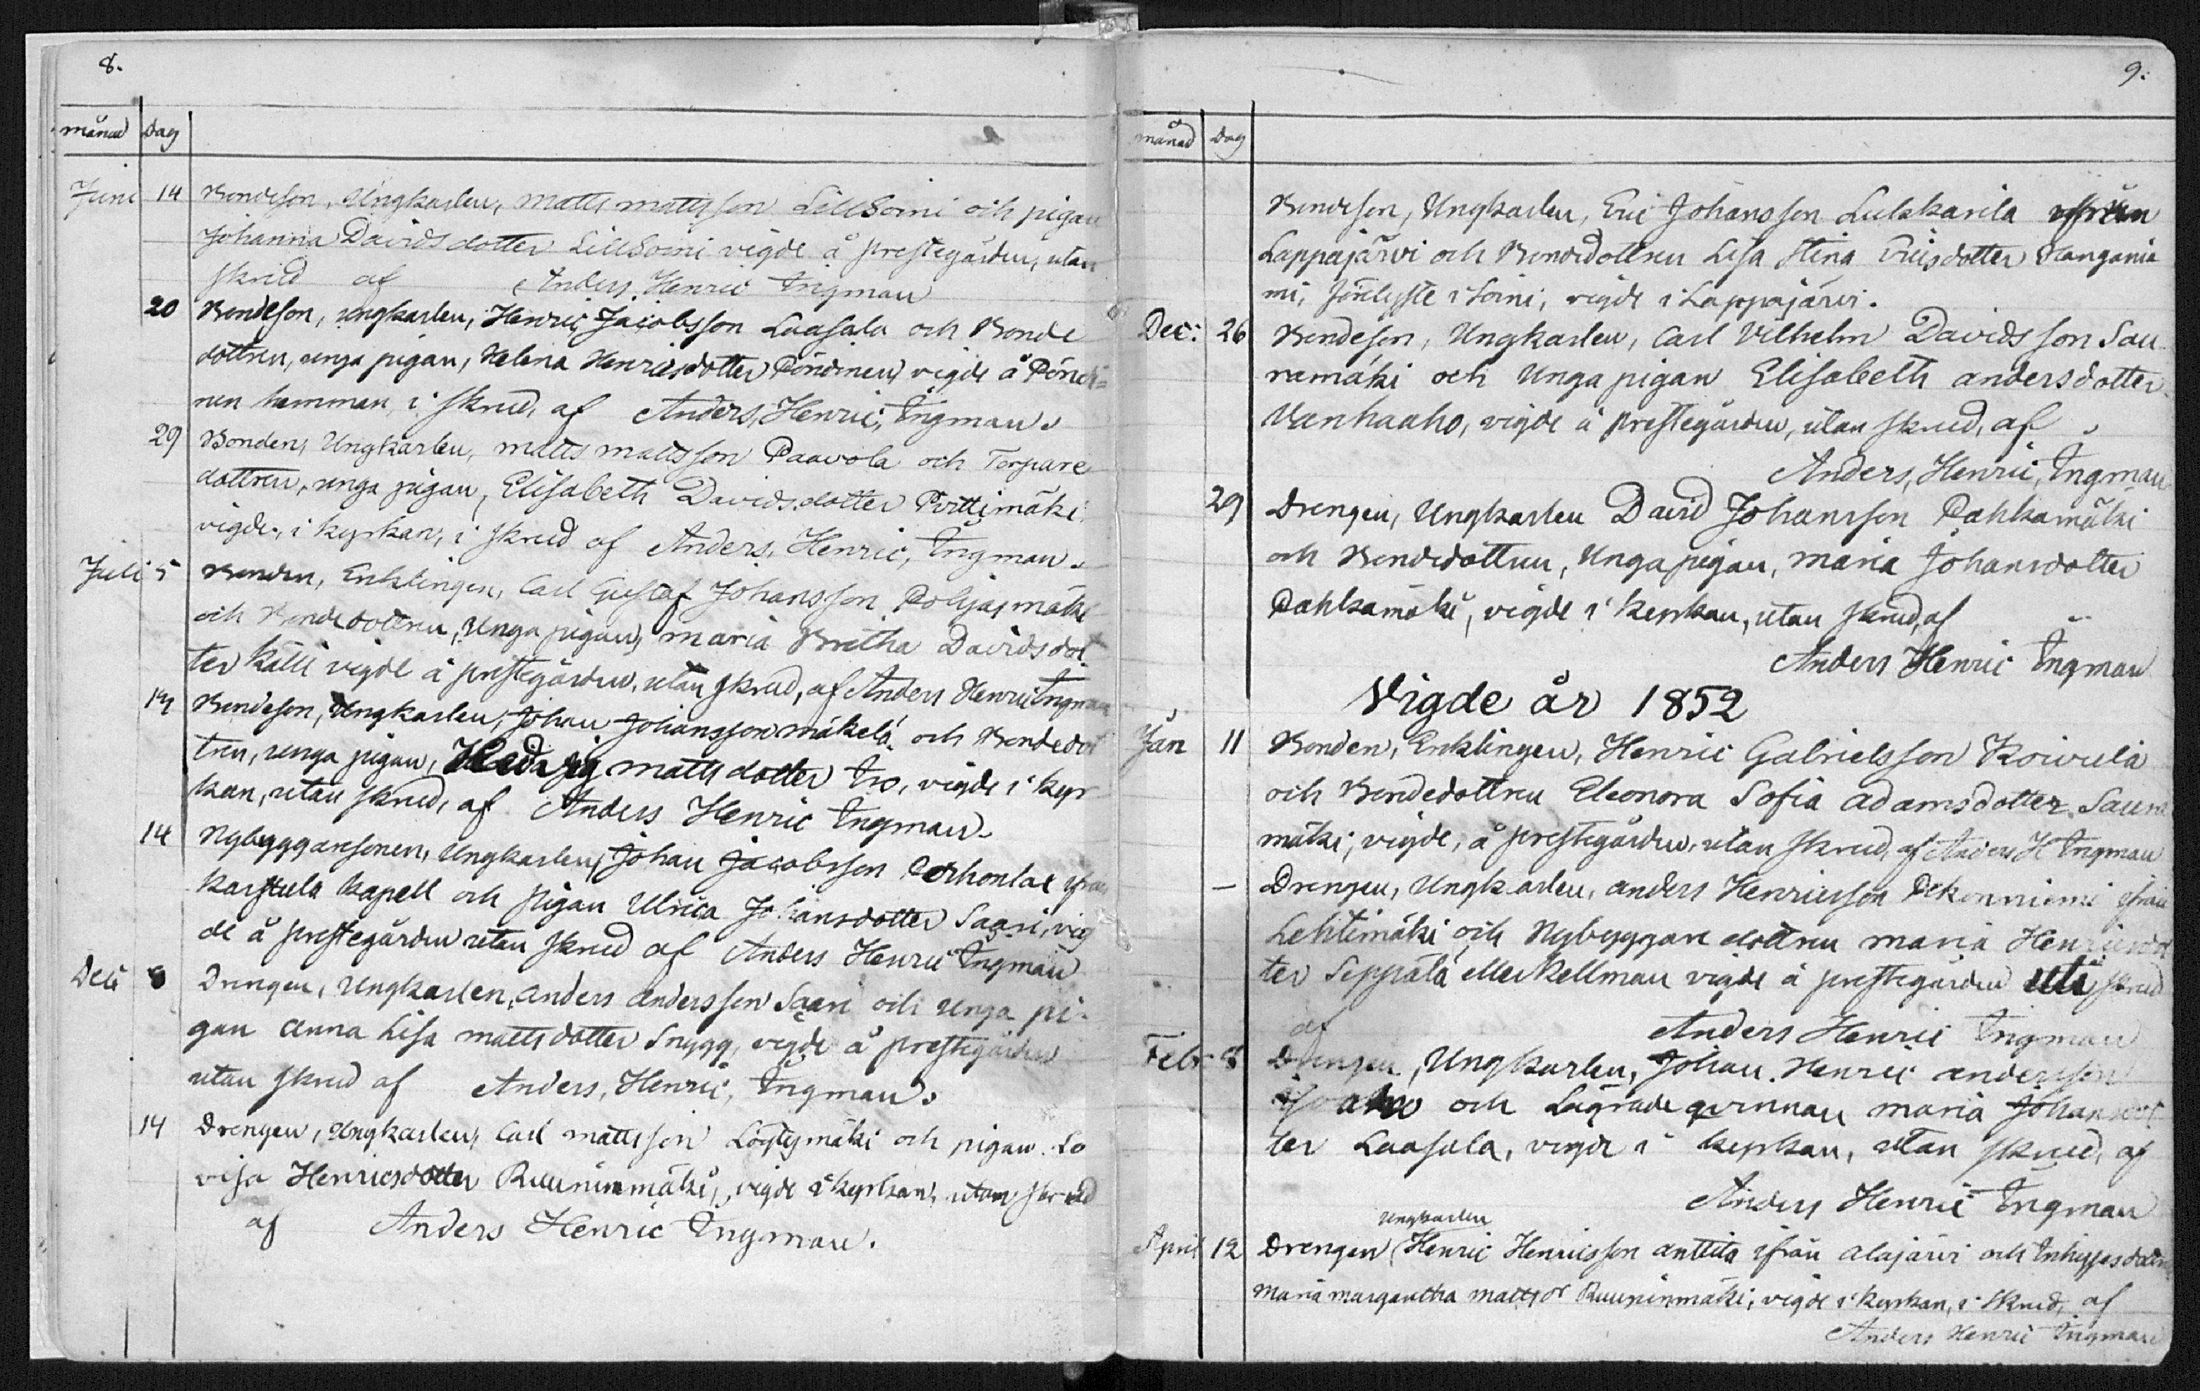 8.
månad Dag
Juni 14 Bondeson, Ungkarlen, Matts Mattsson LillSoini och pigan
Johanna Davidsdotter LillSoini vigde å prestegården, utan
skrud af Anders Henric Ingman
20 Bondeson, ungkarlen, Henric Jacobsson Laasala och Bonde
dottren, unga pigan, Helena Henricsdotter Pönönen, vigde å Pönö-
nen hemman, i skrud, af Anders, Henric, Ingman.
29 Bonden, Ungkarlen, Matts Mattsson Paavola och Torpare
dottren, unga pigan, Elisabeth Davidsdotter Pirttimäki
vigde, i kyrkan, i skrud af Anders, Henric, Ingman.
Juli 5 Bonden, Enklingen, Carl Gustaf Johansson Pohjasmäki
och Bondedottren, Unga pigan, Maria Bretha Davidsdot
ter Källi vigde å prestegården, utan skrud, af Anders Henric Ingman
Bondeson, Ungkarlen, Johan Johansson Mäkelä och Bondedot
tren, unga pigan, Hedvig Mattsdotter Iro, vigde i kyr
kan, utan skrud, af Anders Henric Ingman.
14 Nybyggaresonen, Ungkarlen, Johan Jacobsson ifrån
Karstula kapell och pigan Ulrica Johansdotter Saari, vig
de å prestegården utan skrud af Anders Henric Ingman
Dec 8 Drengen, Ungkarlen, Anders Andersson Saari och unga pi-
gan Anna Lisa Mattsdotter Snygg, vigde å prestegården
utan skrud af Anders, Henric, Ingman.
14 Drengen, Ungkarlen, Carl Mattsson Löytymäki och pigan Lo
visa Henricsdotter Ruuninmäki, vigde i kyrkan, utan skrud
af Anders Henric Ingman.
9.
månad Dag
Bondeson, Ungkarlen, Eric Johansson Lulkkarila ifrån
Lappajärvi och Bondedottren Lisa Stina Ericsdotter Kangania
mi, förelyste i Soini, vigde i Lappajärvi.
Dec: 26 Bondeson, Ungkarlen, Carl Vilhelm Davidsson Sau
namäki och Unga pigan Elisabeth Andersdotter
Vanhaaho, vigde å prestegården, utan skrud, af
Anders, Henric, Ingman
29 Drengen, Ungkarlen David Johansson Pahkamäki
och Bondedottren, Unga pigan, Maria Johansdotter
Pahkamäki, vigde i kyrkan, utan skrud, af
Anders Henric Ingman
Vigde år 1852
Jan 11 Bonden, Enklingen, Henric Gabrielsson Koivula
och Bondedottren Eleonora Sofia Adamsdotter Sauna
mäki, vigde, å prestegården, utan skrud, af Anders H Ingman
— Drengen, Ungkarlen, Anders Henricsson Pekonniemi ifrån
Lehtimäki och Nybyggare dottren Maria Henricsdot
ter Seppälä eller Kellman vigde å prestegården uti skrud
af Anders Henric Ingman
Febr 8 Drengen, Ungkarlen, Johan Henric Andersson
och Lägrade qvinnan Maria Johansdot
ter Laasala, vigde i kyrkan, utan skrud, af
Anders Henric Ingman
Ungkarlen
April 12 Drengen, Henric Henricsson Anttila ifrån Alajärvi och Inhysesdottren
Maria Margaretha Mattsdr Ruuninmäki, vigde i kyrkan, i skrud, af
Anders Henric Ingman